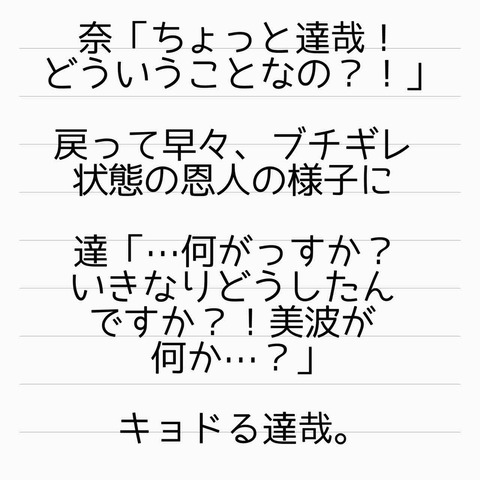 奈「ちょっと達哉！
どういうことなの？！」
戻って早々、ブチギレ
状態の恩人の様子に
達「…何がっすか？
いきなりどうしたん
ですか？！美波が
何か…？」
キョドる達哉。